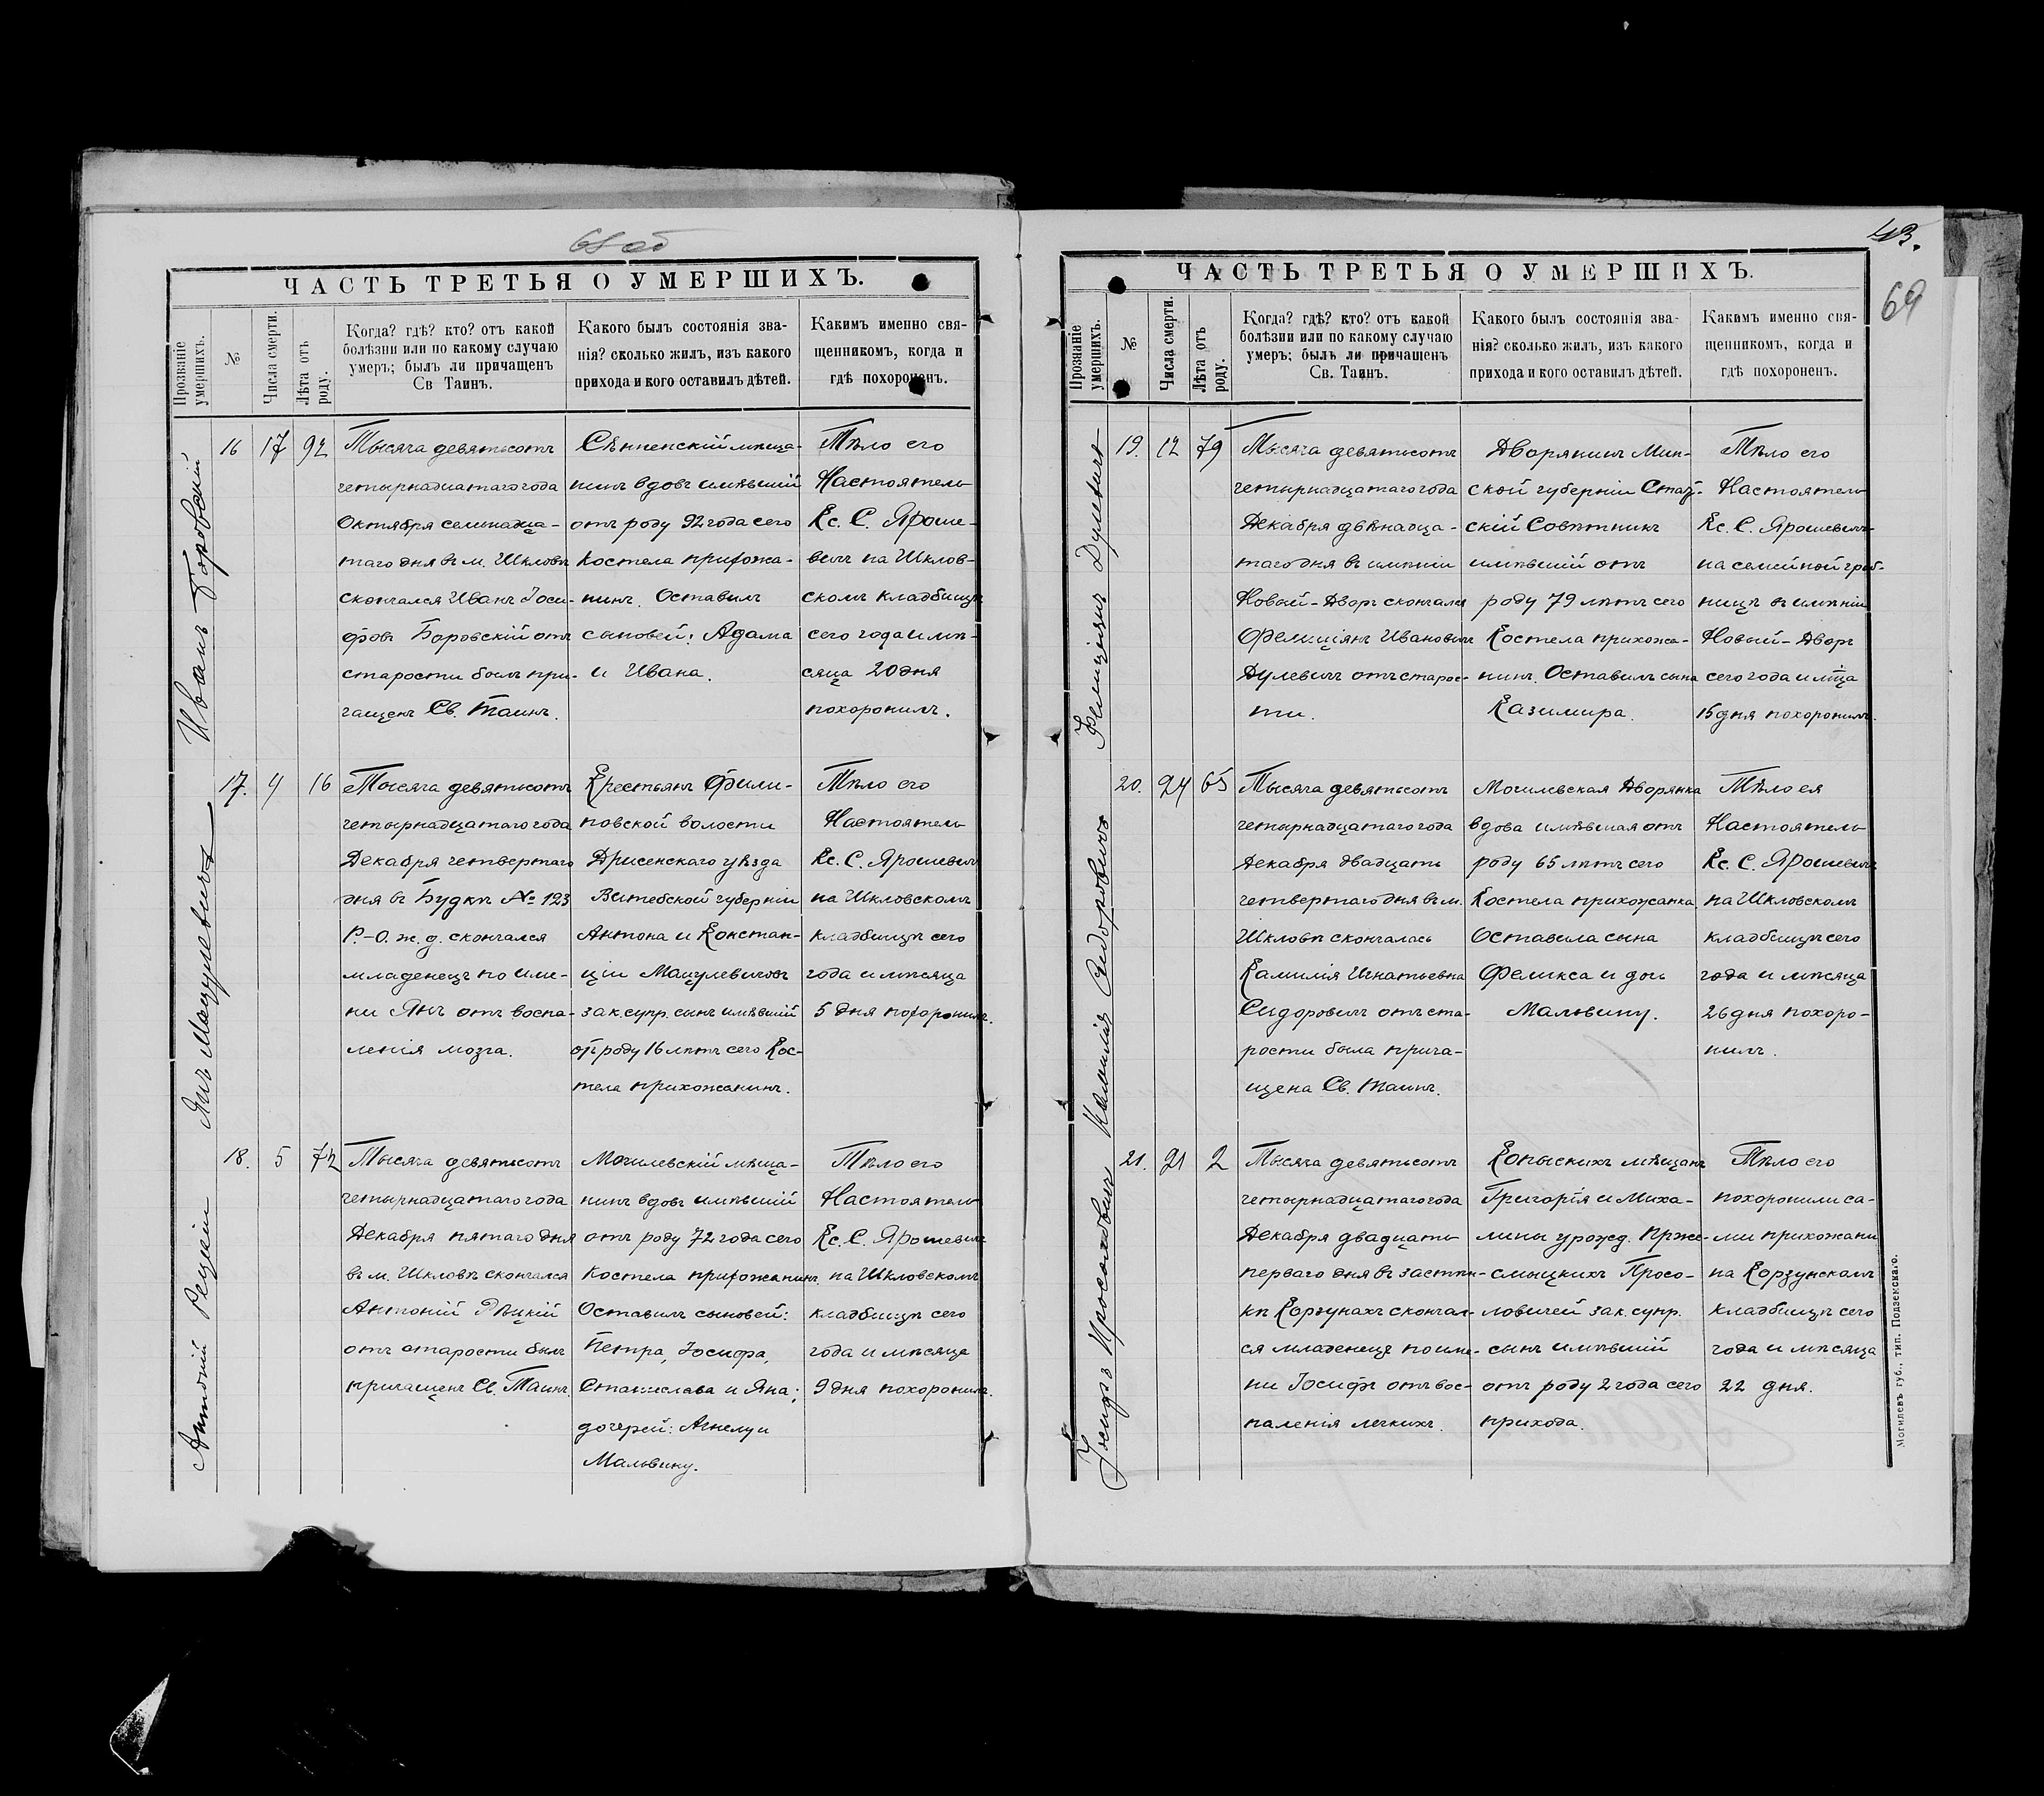 68 об
ЧАСТЬ ТРЕТЬЯ О УМЕРШИХЪ.
Прозваніе умершихъ.
№
Числа смерти.
Лѣта отъ роду.
Когда? гдѣ? кто? отъ какой
болѣзни или по какому случаю
умеръ; былъ ли причащенъ
Св Таинъ.
Какого былъ состоянія зва-
нія? сколько жилъ, изъ какого
прихода и кого оставилъ дѣтей.
Какимъ именно свя-
щенникомъ, когда и
гдѣ похороненъ.
Иванъ Боровскій
16
17
92
Тысяча девятьсотъ
четырнадцатаго года
Октября семьнадца-
таго дня въ м. Шкловѣ
скончался Иванъ Іоси-
фовъ Боровскій отъ
старости былъ при-
чащенъ Св. Таинъ.
Сѣнненскій мѣща-
нинъ вдовъ имѣвшій
отъ роду 92 года сего
Костела прихожа-
нинъ. Оставилъ
сыновей: Адама
и Ивана.
Тѣло его
Настоятель
Кс. С. Яроше-
вичъ на Шклов-
скомъ кладбищѣ
сего года и мѣ-
сяца 20 дня
похоронилъ.
Янъ Мацулевичъ
17.
4
16
Тысяча девятьсотъ
четырнадцатаго года
Декабря четвертаго
дня въ Будкѣ № 123
Р.-О. ж. д. скончался
младенецъ по име-
ни Янъ отъ воспа-
ленія мозга.
Крестьянъ Фили-
повской волости
Дрисенскаго уѣзда
Витебской губерніи
Антона и Констан-
ціи Мацулевичовъ
зак. супр. сынъ имѣвшій
отъ роду 16 лѣтъ сего Кос-
тела прихожанинъ.
Тѣло его
Настоятель
Кс. С. Ярошевичъ
на Шкловскомъ
кладбищѣ сего
года и мѣсяца
5 дня похоронилъ.
Антоній Рецкій
18.
5
72
Тысяча девятьсотъ
четырнадцатаго года
Декабря пятаго дня
въ м. Шкловѣ скончался
Антоній Рѣцкій
отъ старости былъ
причащенъ Св. Таинъ.
Могилевскій мѣща-
нинъ вдовъ имѣвшій
отъ роду 72 года сего
Костела прихожанинъ.
Оставилъ сыновей:
Петра, Іосифа,
Станислава и Яна;
дочерей: Анелу и
Мальвину.
Тѣло его
Настоятель
Кс. С. Ярошевичъ
на Шкловскомъ
кладбищѣ сего
года и мѣсяца
9 дня похоронилъ.
43.
69
ЧАСТЬ ТРЕТЬЯ О УМЕРШИХЪ.
Прозваніе умершихъ.
№
Числа смерти.
Лѣта отъ роду.
Когда? гдѣ? кто? отъ какой
болѣзни или по какому случаю
умеръ; былъ ли причащенъ
Св. Таинъ.
Какого былъ состоянія зва-
нія? сколько жилъ, изъ какого
прихода и кого оставилъ дѣтей.
Какимъ именно свя-
щенникомъ, когда и
гдѣ похороненъ.
Фелиціянъ Дулевичъ
19.
12
79
Тысяча девятьсотъ
четырнадцатаго года
Декабря двѣнадца-
таго дня въ имѣніи
Новый-Дворъ скончался
Фелиціянъ Ивановичъ
Дулевичъ отъ старос-
ти.
Дворянинъ Мин-
ской губерніи Стат-
скій Совѣтникъ
имѣвшій отъ
роду 79 лѣтъ сего
Костела прихожа-
нинъ. Оставилъ сына
Казимира.
Тѣло его
Настоятель
Кс. С. Ярошевичъ
на семейной гроб-
ницѣ въ имѣніи
Новый-Дворъ
сего года и м-ца
15 дня похоронилъ.
Камилія Сидоровичъ
20.
24
65
Тысяча девятьсотъ
четырнадцатаго года
Декабря двадцать
четвертаго дня въ м.
Шкловѣ скончалась
Камилія Игнатьевна
Сидоровичъ отъ ста-
рости была прича-
щена Св. Таинъ.
Могилевская Дворянка
вдова имѣвшая отъ
роду 65 лѣтъ сего
Костела прихожанка.
Оставила сына
Феликса и дочь
Мальвину.
Тѣло ея
Настоятель
Кс. С. Ярошевичъ
на Шкловскомъ
кладбищѣ сего
года и мѣсяца
26 дня похоро-
нилъ.
Іосифъ Просоловичъ
21.
21
2
Тысяча девятьсотъ
четырнадцатаго года
Декабря двадцать
перваго дня въ застѣн-
кѣ Корзунахъ скончал-
ся младенецъ по име-
ни Іосифъ отъ вос-
паленія легкихъ.
Копыскихъ мѣщанъ
Григорія и Миха-
лины урожд. Прже-
смыцкихъ Просо-
ловичей зак. супр.
сынъ имѣвшій
отъ роду 2 года сего
прихода.
Тѣло его
похоронили са-
ми прихожани
на Корзунскомъ
кладбищѣ сего
года и мѣсяца
22 дня.
Могилевъ губ., тип. Подземскаго.